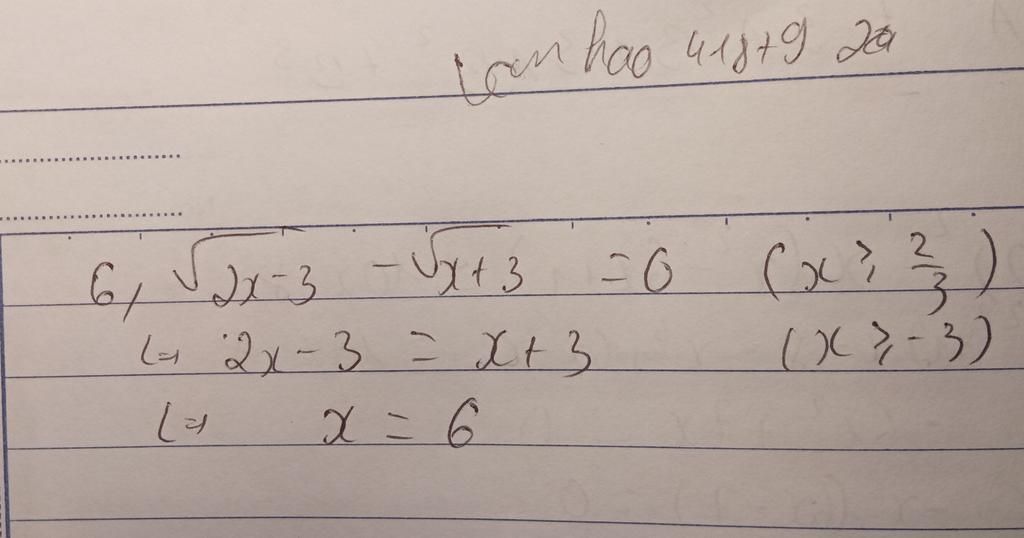 hao 418+9
6, √2x-3 - √x+3 = 0 (x ≥ 2/3)
(=) 2x - 3 = x + 3 (x ≥ -3)
(=) x = 6